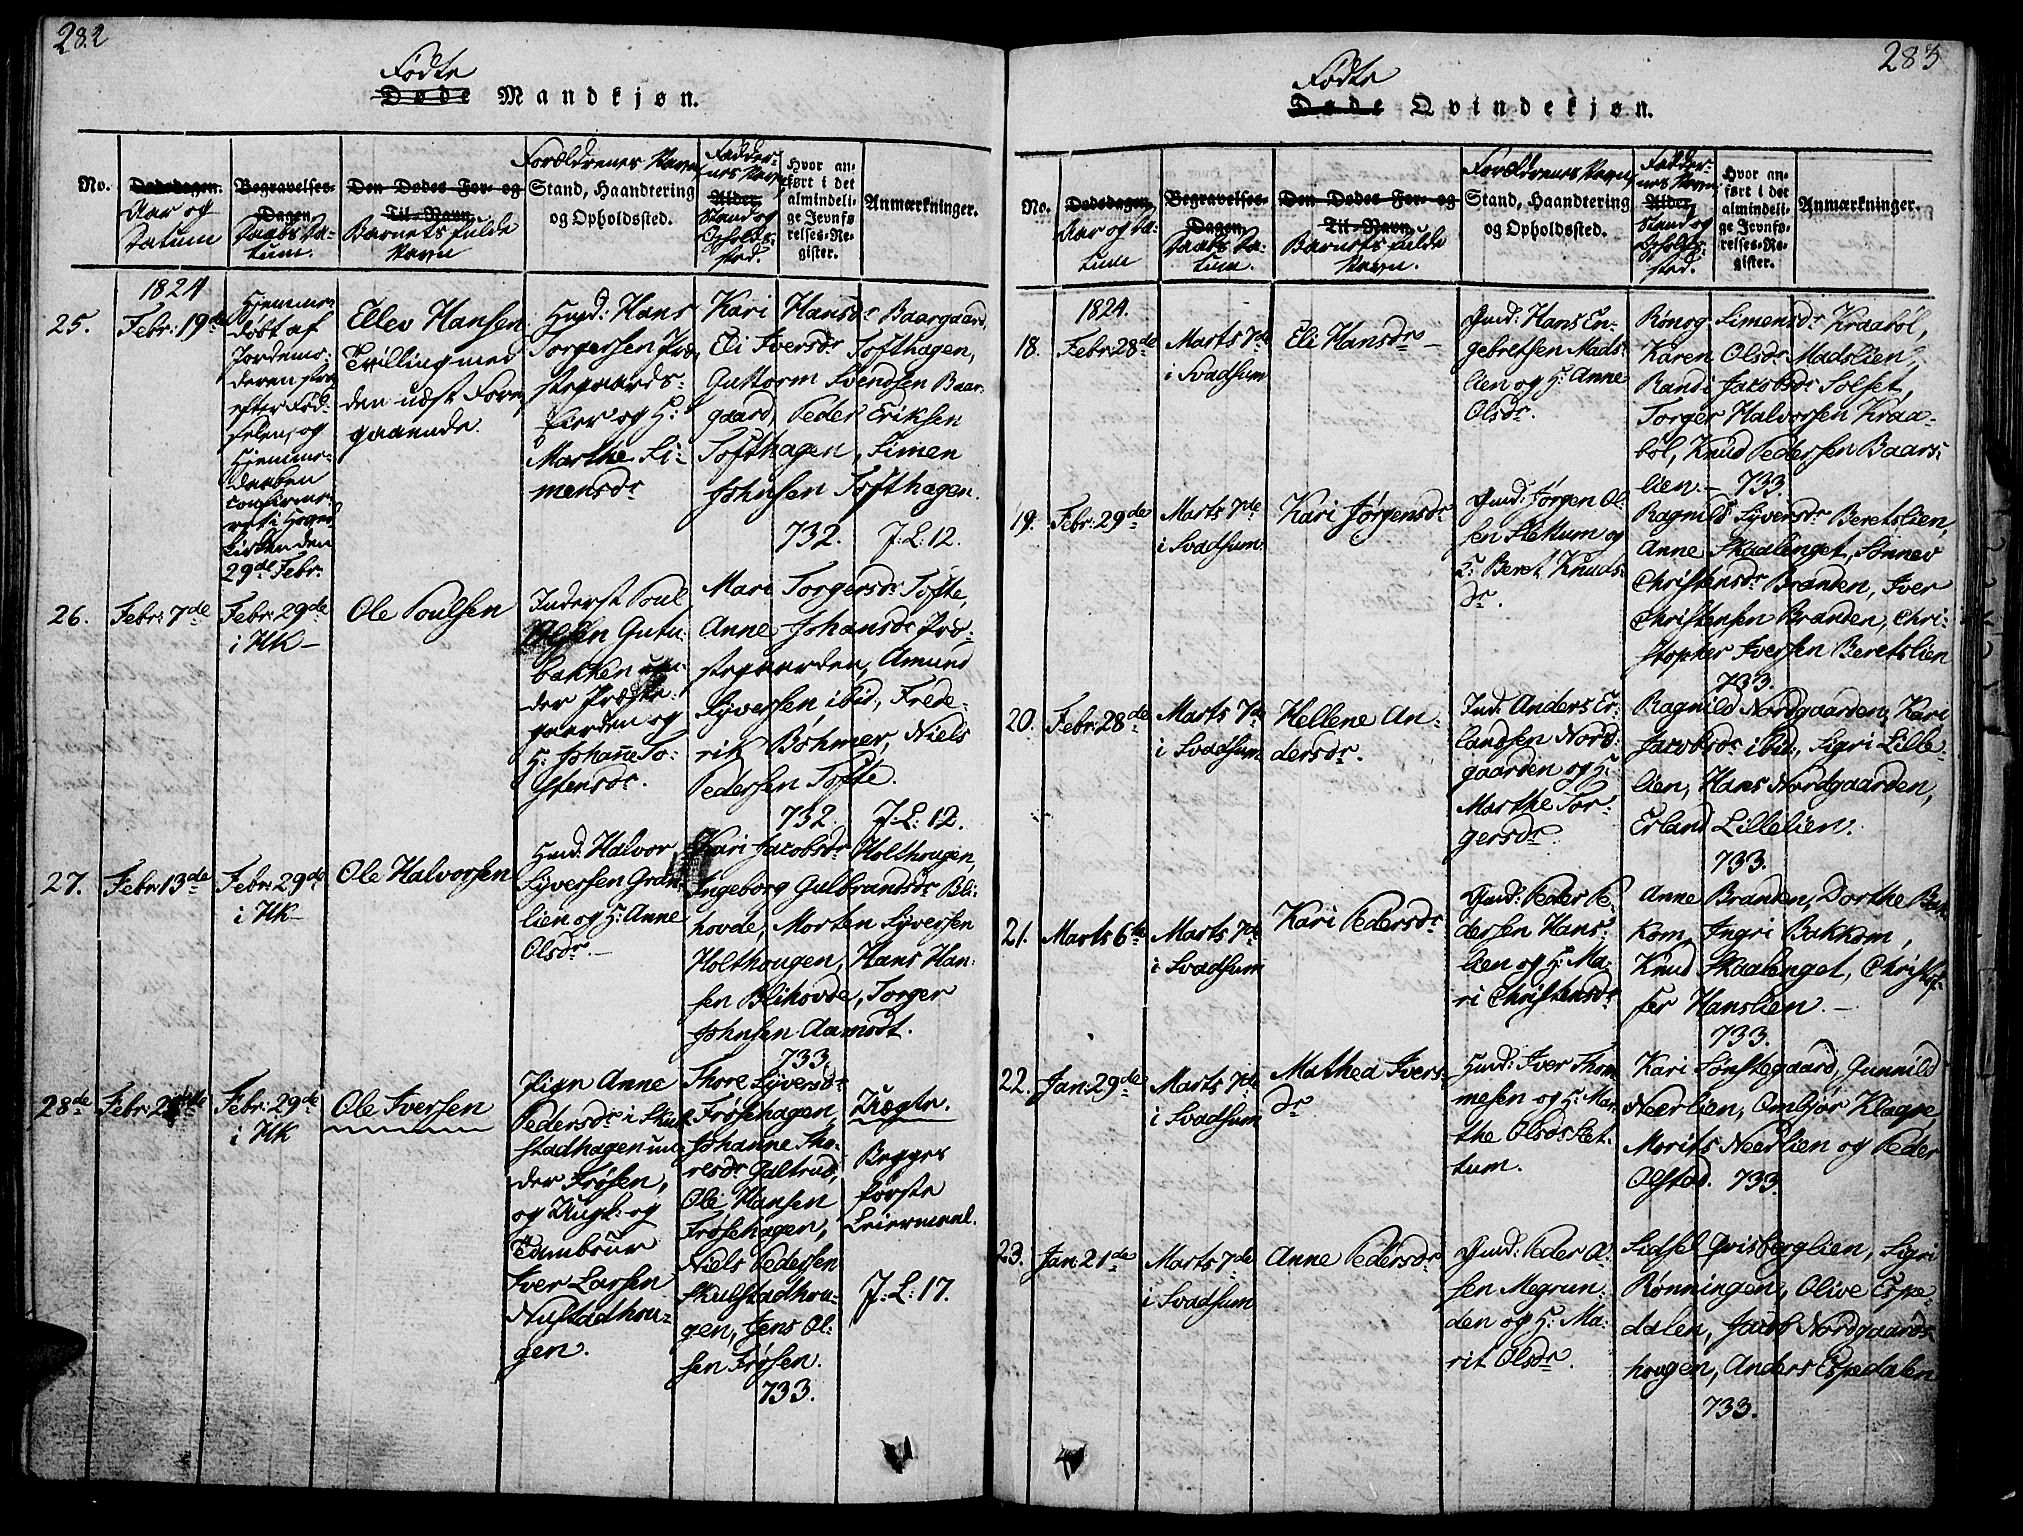 282
Fødte
Døde Mandkjøn.
No.
Dødsdagen.
Aar og
Datum
Begravelses-
Dagen
Daabs Da-
tum.
Den Dødes For- og
Til-Navn
Barnets fulde
Navn
Forældrenes Navn
Stand, Haandtering
og Opholdssted.
Fadder-
nes Navn
Alder
Stand og
Opholds-
sted.
Hvor an-
ført i det
almindeli-
ge Jevnfø-
relses-Re-
gister.
Anmærkninger.
1824
25.
Febr: 19de
Hjemme-
døbt af
Jordemo-
deren strax
efter Fød-
selen, og
Hjemme-
daaben
confirme-
ret i Hoved
Kirken den
29de Febr:
Ellev Hansen
Tvilling med
den næst Fore-
gaaende.
Huusmd: Hans
Torgersen Præ-
stegaards-
eier og H:
Marthe Si-
mensdr
Kari Hansdr Baargaard,
Eli Iversdr Tofthagen,
Guttorm Svendsen Baar-
gaard, Peder Eriksen
Tofthagen, Simen
Johnsen Tofthagen.
732. J: L: 12.
26.
Febr: 7de
Febr: 29de
i HK-
Ole Poulsen
Inderst Poul
Olsen Gutu-
bakken un-
der Præste-
gaarden og
H: Johanne To-
stensdr.
Mari Torgersdr Tofte,
Anne Johansdr Præ-
stegaarden, Amund
Syversen ibid, Frede-
rik Bøhmer, Niels
Pedersen Tofte.
732. J: L: 12.
27.
Febr: 13de
Febr: 29de
i HK-
Ole Halvorsen
Huusmd: Halvor
Syversen Gran-
lien og H: Anne
Olsdr.-
Kari Jacobsdr Holthougen,
Ingeborg Gulbrandsdr Bli-
hovde, Morten Syversen
Holthougen, Hans Han-
sen Blihovde, Torger
Johnsen Aamodt.
733.
28de
Febr:
Febr: 29de
i HK
Ole Iversen
Pigen Anne
Pedersdr i Skul-
stadhagen un-
der Frøsen,
og Ungk: og
Tambour
Iver Larsen
Nustadhou-
gen.
Thore Syversdr
Frøsehagen,
Johanne Tho-
resdr Galtrud,
Ole Hansen
Frøsehagen,
Niels Pedersen
Skulstadhou-
gen, Jens Ol-
sen Frøsen.
733.
Uægte.
Begges
første
Leiermaal.
J: L: 17.
283
Fødte
Døde Qvindekjøn.
No.
Dødsdagen.
Aar og Da-
tum
Begravelses-
Dagen.
Daabs Da-
tum.
Den Dødes For- og
Til-Navn
Barnets fulde
Navn.
Forældrenes Navn,
Stand, Haandtering
og Opholdssted.
Fadder-
nes Navn
Alder
Stand og
Opholds-
sted.
Hvor an-
ført i det
almindeli-
ge Jevnfø-
relses-Re-
gister.
Anmærkninger.
1824.
18.
Febr: 28de
Marts 7de
i Svadsum
Eli Hansdr -
Gmd: Hans En-
gebretsen Mads-
lien og H: Anne
Olsdr.
Rønog Simensdr Kraabøl,
Karen Olsdr Madslien,
Randi Jacobsdr Solset,
Torger Halvorsen Kraa-
bøl, Knud Pedersen Baars-
lien.- 733.
19.
Febr: 29de
Marts 7de
i Svadsum.
Kari Jørgensdr
Gmd: Jørgen Ol-
sen Slettum og
H: Beret Knuds-
dr.
Ragnild Syversdr Beretslien,
Anne Skaalenget, Sønnev
Christensdr Branden, Iver
Christensen Branden, Chri-
stopher Iversen Beretslien
733.
20.
Febr: 28de
Marts 7de
i Svadsum
Hellene An-
dersdr.
Ind: Anders Er-
landsen Nord-
gaarden og H:
Marthe Tor-
gersdr
Ragnild Nordgaarden, Kari
Jacobsdr ibid:, Sigri Lille-
lien, Hans Nordgaarden,
Erland Lillelien.
733.
21.
Marts 6te
Marts 7de
i Svadsum
Kari Pedersdr
Gmd: Peder Pe-
dersen Hans-
lien og H: Ma-
ri Christensdr
Anne Branden, Dorthe Bak-
kom, Ingri Bakkom,
Knud Skaalenget, Christof-
fer Hanslien.-
733.
22.
Jan: 29de
Marts 7de
i Svadsum
Mathea Ivers-
dr
Huusmd: Iver Thom-
mesen og H: Mar-
the Olsdr Slet-
tum.
Kari Sønstegaard, Gunnild
Neerlien, Ombjør Klagge,
Morits Neerlien og Peder
Olstad. 733.
23.
Jan: 21de
Marts 7de
i Svadsum
Anne Pedersdr
Gmd: Peder Ol-
sen Megrun-
den og H: Ma-
rit Olsdr.
Sidsel Qvisberglien, Sigri
Rønningen, Olive Espe-
dalen, Jacob Nordgaards-
hougen, Anders Espedalen
733.